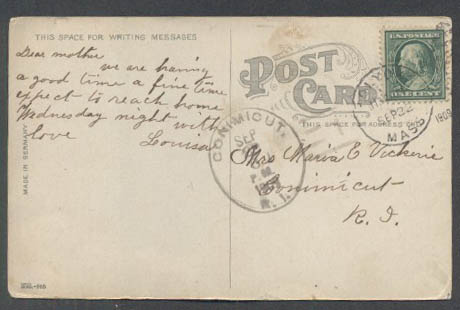 THIS SPACE FOR WRITING MESSAGES
Dear mother
we are having
a good time a fine time
expect to reach home
Wednesday night with
love Louisa
MADE IN GERMANY
POST CARD
THIS SPACE FOR ADDRESS ONLY
U.S. POSTAGE
ONE CENT
SEP 22
MASS
1909
CONIMICUT.
SEP
P.M.
R. I.
Mrs Maria E Vickerie
Conimicut
R. I.